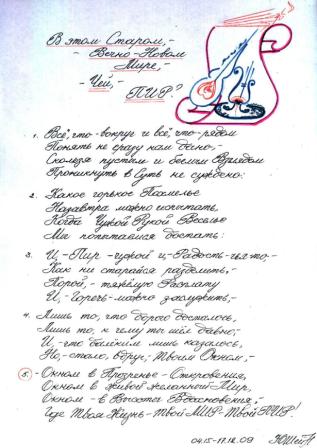 В этом Старом,-
- Вечно-Новом
Мире,-
- Чей,-
- ПИР?
1. Всё, что-вокруг и всё, что-рядом
Понять не сразу нам дано,-
Скользя пустым и беглым Взглядом
Проникнуть в Суть не суждено:
2. Какое горькое Похмелье
Назавтра можно испытать,
Когда Чужой Рукой Веселье
Мы попытаемся достать:
3. И,-Пир-чужой и,-Радость-чья-то:-
Как ни старайся разделить,-
Порой,-тяжёлую Расплату
И,-Горечь-можно заслужить,-
4. Лишь то, что дорого досталось,
Лишь то, к чему ты шёл давно;-
И,-что далёким лишь казалось,
Но,-стало, вдруг,-Твоим Окном,-:
5. -Окном в Прозренье-Откровения,
Окном в живой желанный Мир,
Окном-в Высоты Вдохновения,-
Где Твоя Жизнь-Твой МИР-Твой ПИР!
04.15-17.12.09